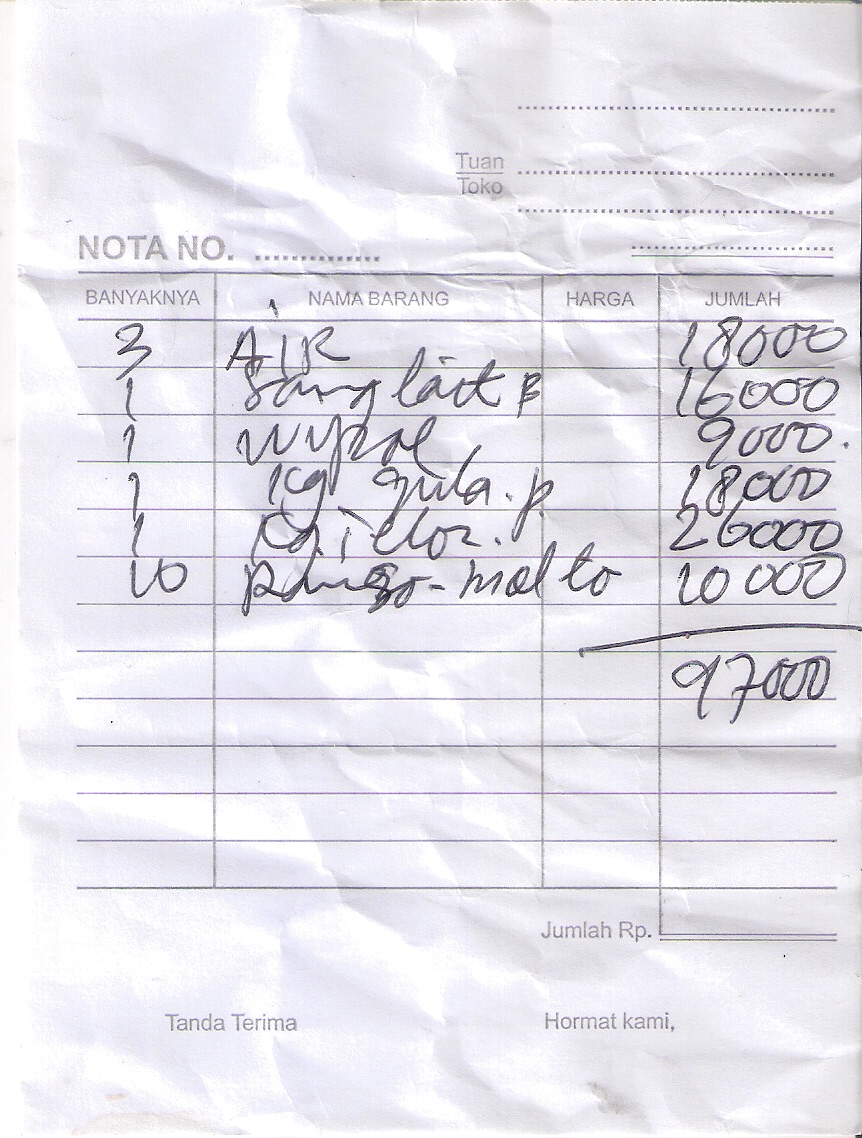 Tuan
Toko
NOTA NO. ..............
BANYAKNYA NAMA BARANG HARGA JUMLAH
3 AIR 18000
1 Sunglait B 16000
1 wypol 9000.
1 kg gula. p 18000
1 kg. telor. p. 26000
10 10000
97000
Jumlah Rp.
Tanda Terima Hormat kami,